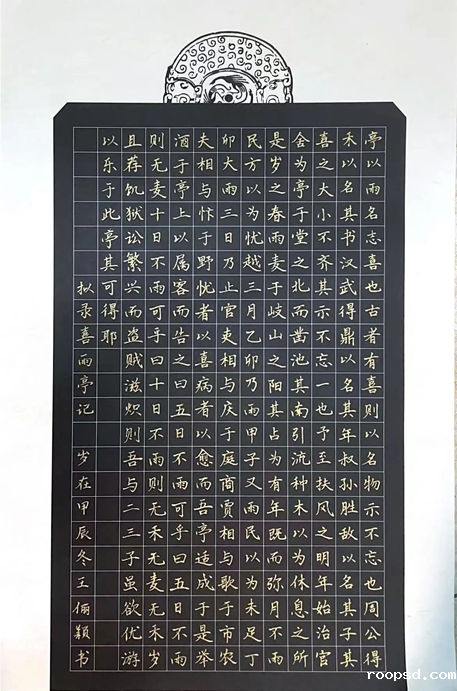 亭以雨名志喜也古者有喜则以名物示不忘也周公得
禾以名其书汉武得鼎以名其年叔孙胜敌以名其子其
喜之大小不齐其示不忘一也予至扶风之明年始治官
舍为亭于堂之北而凿池其南引流种木以为休息之所
是岁之春雨麦于岐山之阳其占为有年既而弥月不雨
民方以为忧越三月乙卯乃雨甲子又雨民以为未足丁
卯大雨三日乃止官吏相与庆于庭商贾相与歌于市农
夫相与忭于野忧者以喜病者以愈而吾亭适成于是举
酒于亭上以属客而告之曰五日不雨可乎曰五日不雨
则无麦十日不雨可乎曰十日不雨则无禾无麦无禾岁
且荐饥狱讼繁兴而盗贼滋炽则吾与二三子虽欲优游
以乐于此亭其可得耶
拟录喜雨亭记 岁在甲辰冬王俪颖书
roopsd.com